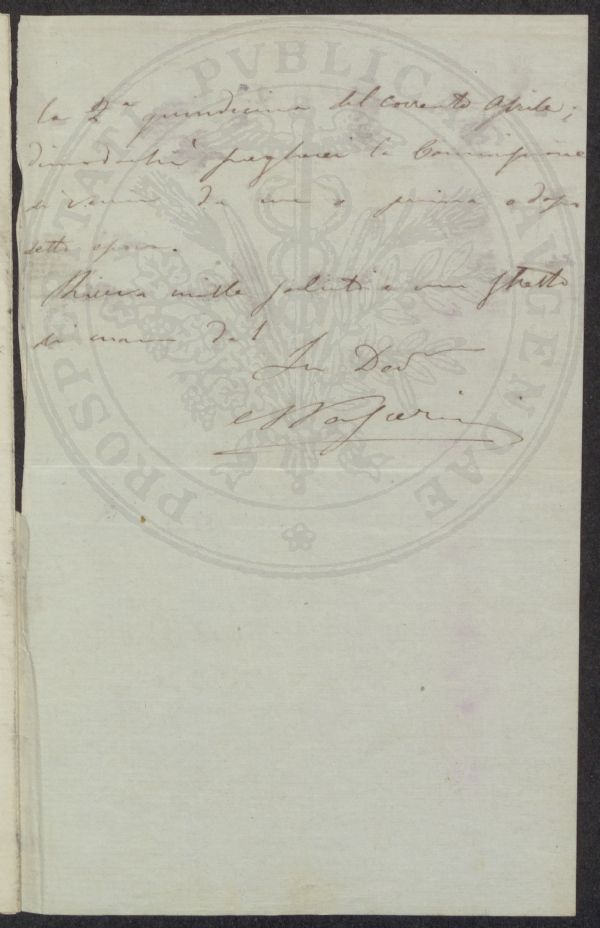 la 2ª quindicina del corrente Aprile;
dimodochè pregherei la Commissione
di venire da me o prima o dopo
detta epoca.
Riceva mille saluti e una stretta
di mano dal
Suo Dev
PROSPERITATI PVBLICAE AVGENDAE